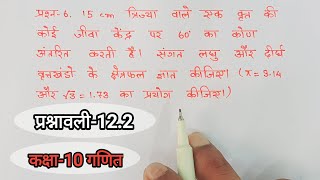 प्रश्न-6. 15 cm त्रिज्या वाले एक वृत्त की
कोई जीवा केंद्र पर 60° का कोण
अंतरित करती है। संगत लघु और दीर्घ
वृत्तखंडो के क्षेत्रफल ज्ञात कीजिए। (π = 3.14
और √3 = 1.73 का प्रयोग कीजिए।)
प्रश्नावली-12.2
कक्षा-10 गणित